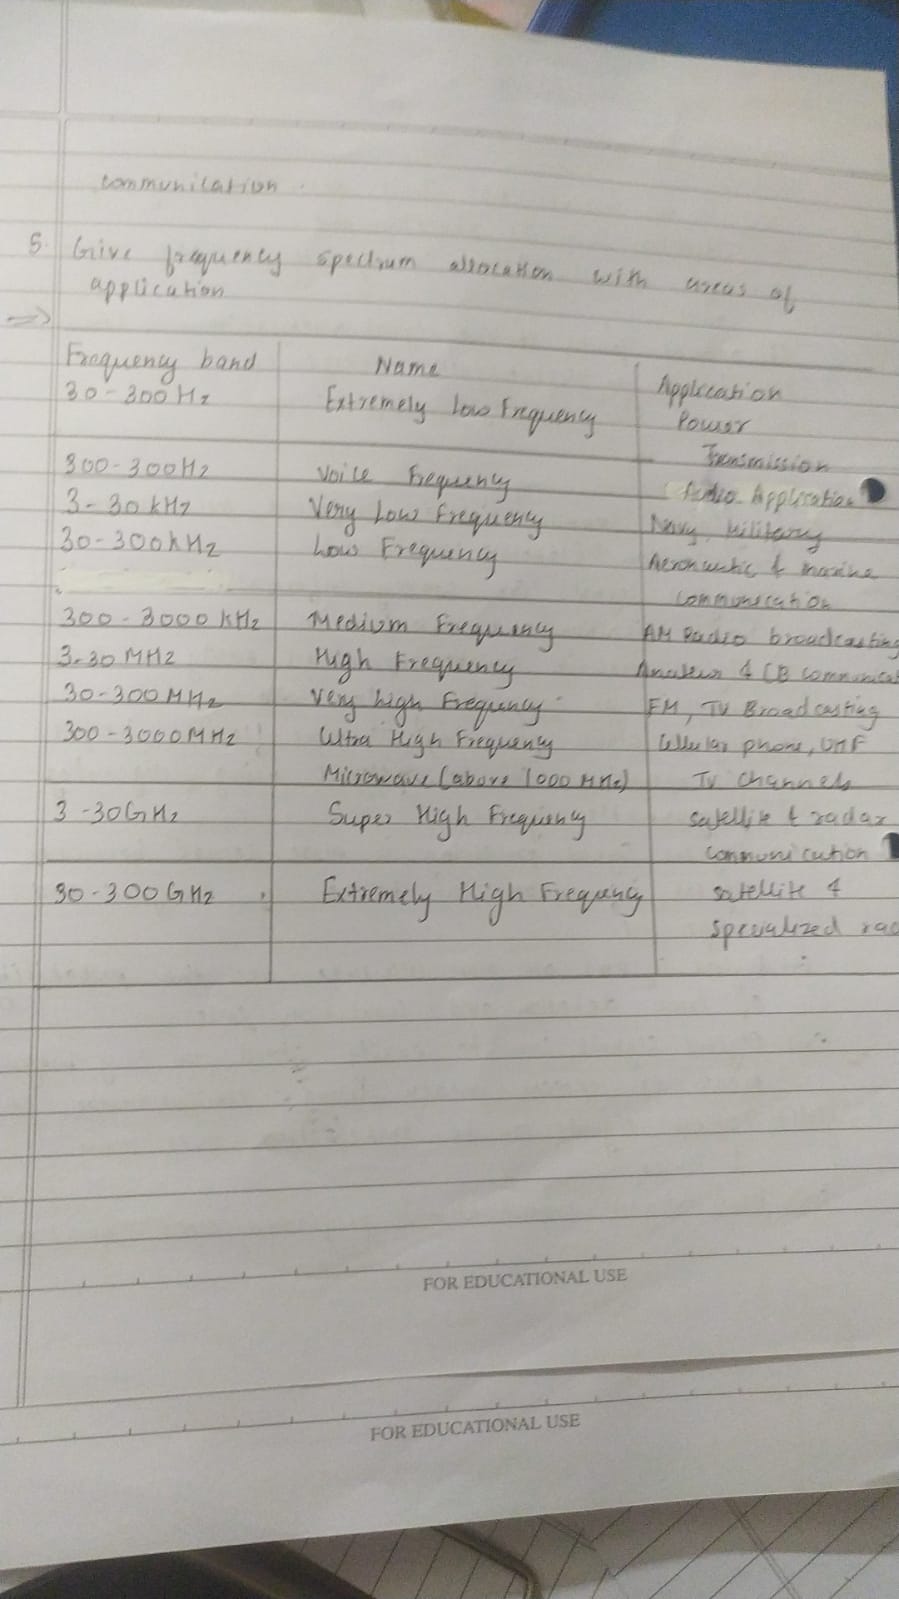 communication.
5. Give frequency spectrum allocation with areas of
application
=>
Frequency band Name Application
30-300Hz Extremely Low Frequency Power
Transmission
300-300Hz Voice Frequency Audio Application
3-30kHz Very Low Frequency Navy, Military
30-300kHz Low Frequency Aeronautic & marine
communication
300-3000kHz Medium Frequency AM Radio broadcasting
3-30MHz High Frequency Amateur & CB communicat
30-300MHz Very high Frequency FM, TV Broadcasting
300-3000MHz Ultra High Frequency Cellular phone, UHF
Microwave (above 1000 MHz) TV Channels
3-30GHz Super High Frequency satellite & radar
communication
30-300GHz Extremely High Frequency satellite &
specialized rad
FOR EDUCATIONAL USE
FOR EDUCATIONAL USE